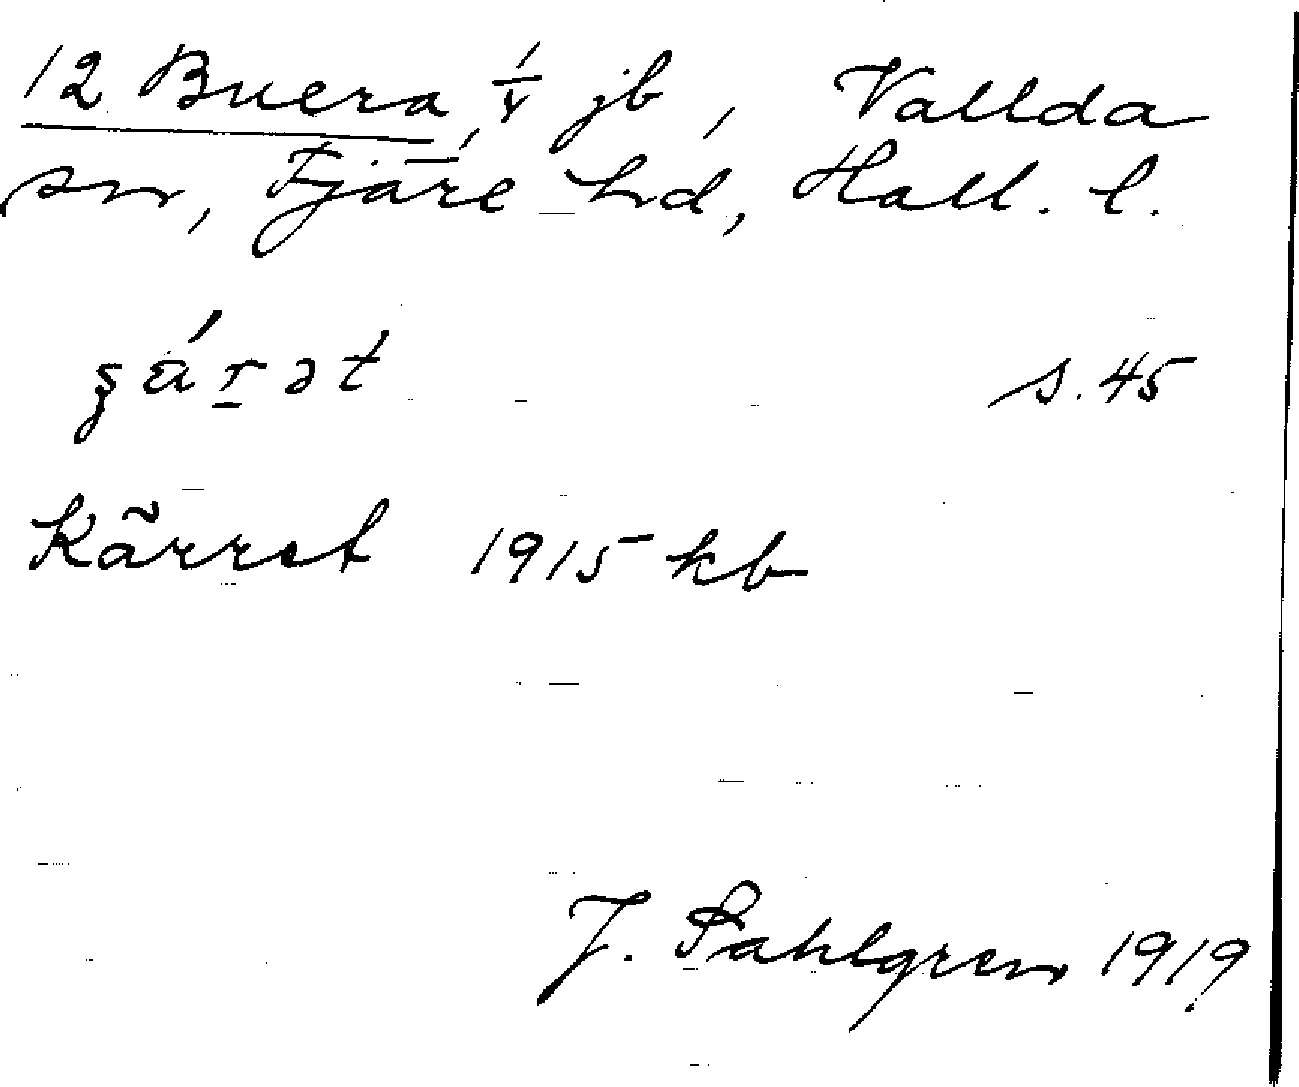 12 Buera, 1/v jb, Vallda
sn, Fjäre hd, Hall. l.
s. 45
Kärret 1915 kb
J. Sahlgren 1919